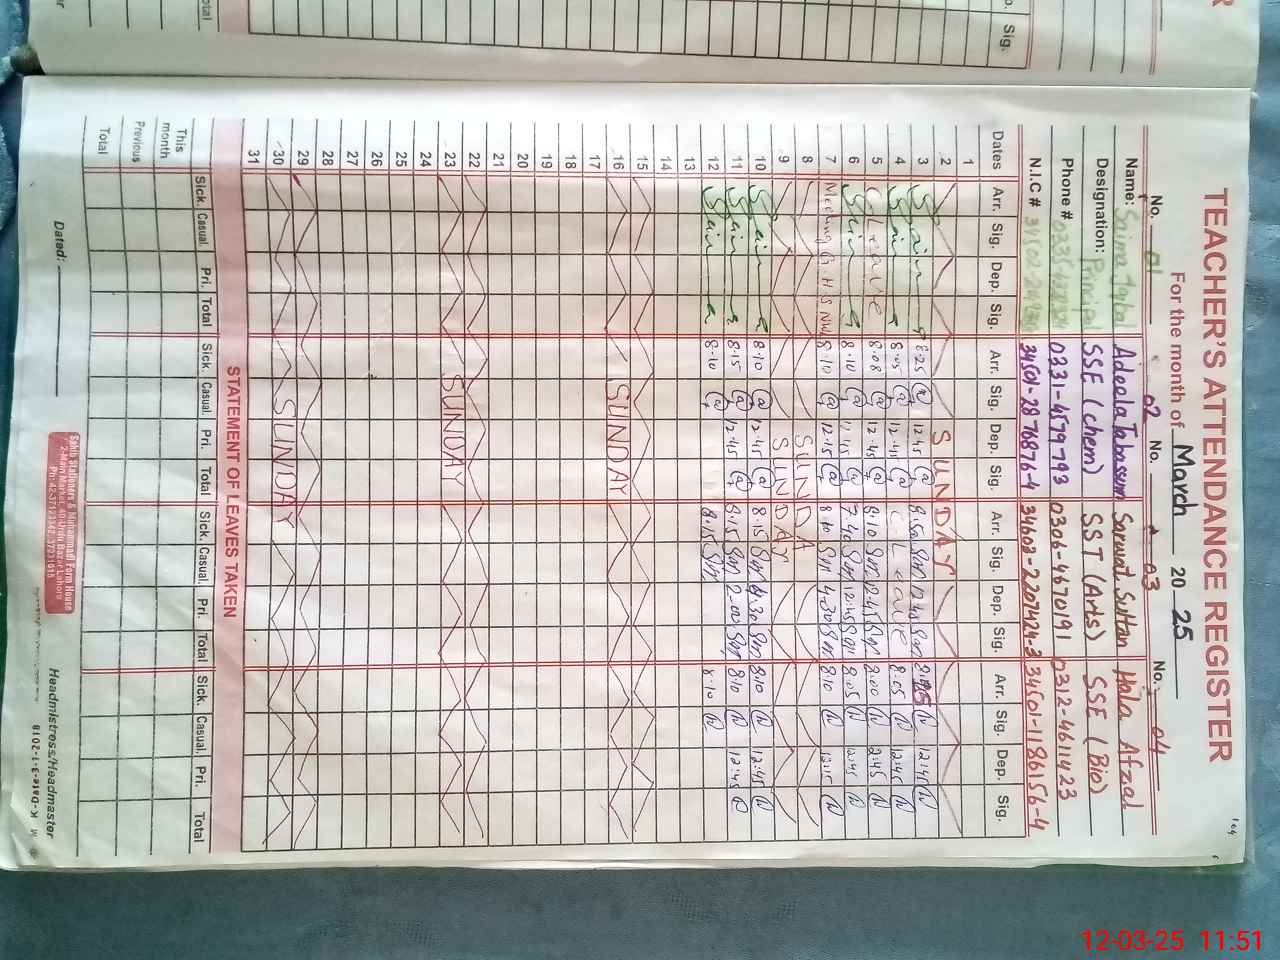 TEACHER'S ATTENDANCE REGISTER
For the month of March 2025
No. 01 No. 02 No. 03 No. 04
Name: Saima Iqbal Adeela Tabassum Sarwat Sultan Hala Afzal
Designation: Principal SSE (chem) SST (Arts) SSE (Bio)
Phone # 0331-4579793 0306-4670191 0312-4611423
N.I.C # 34501-2876876-4 34602-2207424-3 34501-1186156-4
Dates Arr. Sig. Dep. Sig. Arr. Sig. Dep. Sig. Arr. Sig. Dep. Sig. Arr. Sig. Dep. Sig.
1
2 SUNDAY
3 8:25 12:45 12:45
4 8:05 12:45 C. Leave 8:05 12:45
5 C Leave 8:08 12:45 8:10 2:45 8:00 2:45
6 8:10 12:45 7:40 12:45 8:05 12:45
7 Meeting G.H.S 8:10 12:15 8:10 4:30 8:10 12:15
8 SUNDA
9 SUNDAY
10 8:10 12:45 8:15 4:30 8:10 12:45
11 8:15 12:45 8:15 2:00 8:10 12:45
12 8:10 8:15 8:10
13
14
15
16 SUNDAY
17
18
19
20
21
22
23 SUNDAY
24
25
26
27
28
29
30 SUNDAY
31
STATEMENT OF LEAVES TAKEN
Sick. Casual. Pri. Total Sick. Casual. Pri. Total Sick. Casual. Pri. Total Sick. Casual. Pri. Total
This month
Previous
Total
Dated:
Sahib Stationers & Muhammadi Form House
2-Main Market, 40-Urdu Bazar Lahore
Ph: 42-37123342, 37231915
Headmistress/Headmaster
12-03-25 11:51